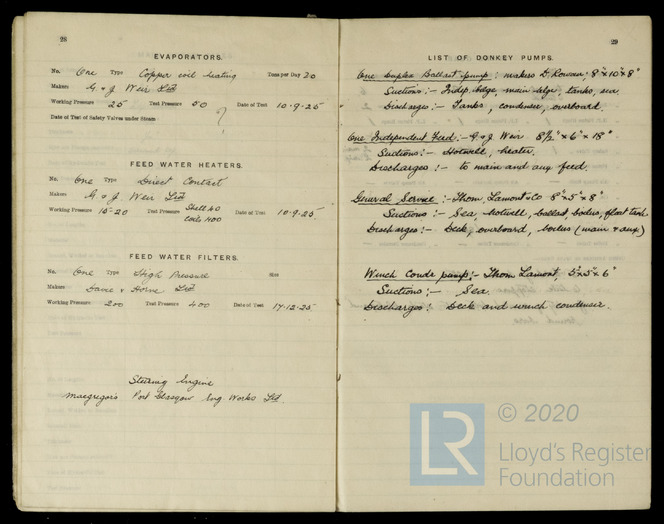 28
EVAPORATORS.
No. One Type Copper coil heating Tons per Day 30
Makers G & J Weir Ltd
Working Pressure 25 Test Pressure 50 Date of Test 10.9.25
Date of Test of Safety Valves under Steam
FEED WATER HEATERS.
No. One Type Direct Contact
Makers G & J Weir Ltd
Working Pressure 15-20 Test Pressure Shell 40 Coils 400 Date of Test 10.9.25
FEED WATER FILTERS.
No. One Type High Pressure Size
Makers & Horne Ltd
Working Pressure 200 Test Pressure 400 Date of Test 17.12.25
Steering Engine
Macgregor's Port Glasgow Eng Works Ltd.
29
LIST OF DONKEY PUMPS.
One Duplex Ballast pump: makers D. Rowan: 8"x10"x8"
Suctions:- Indep. bilge, main bilge, tanks, sea
Discharges:- Tanks, condenser, overboard.
One Independent Feed:- G & J Weir 8½"x6"x18"
Suctions:- Hotwell, heater.
Discharges:- to main and aux feed.
General Service:- Thom, Lamont & Co 8"x5"x8"
Suctions:- Sea, hotwell, ballast, boilers, float tank
Discharges:- Deck, overboard, boilers (main & aux)
Winch Condr pump:- Thom Lamont, 5"x5"x6"
Suctions:- Sea.
Discharges: Deck and winch condenser.
LR © 2020
Lloyd's Register
Foundation